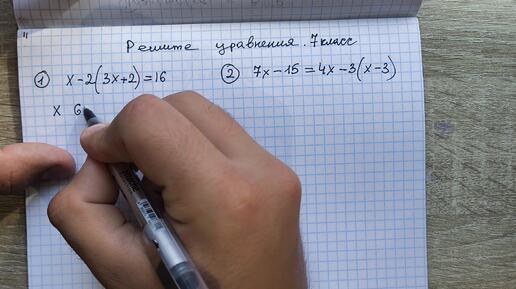 Решите уравнения. 7 класс
① x-2(3x+2)=16
② 7x-15=4x-3(x-3)
x 6